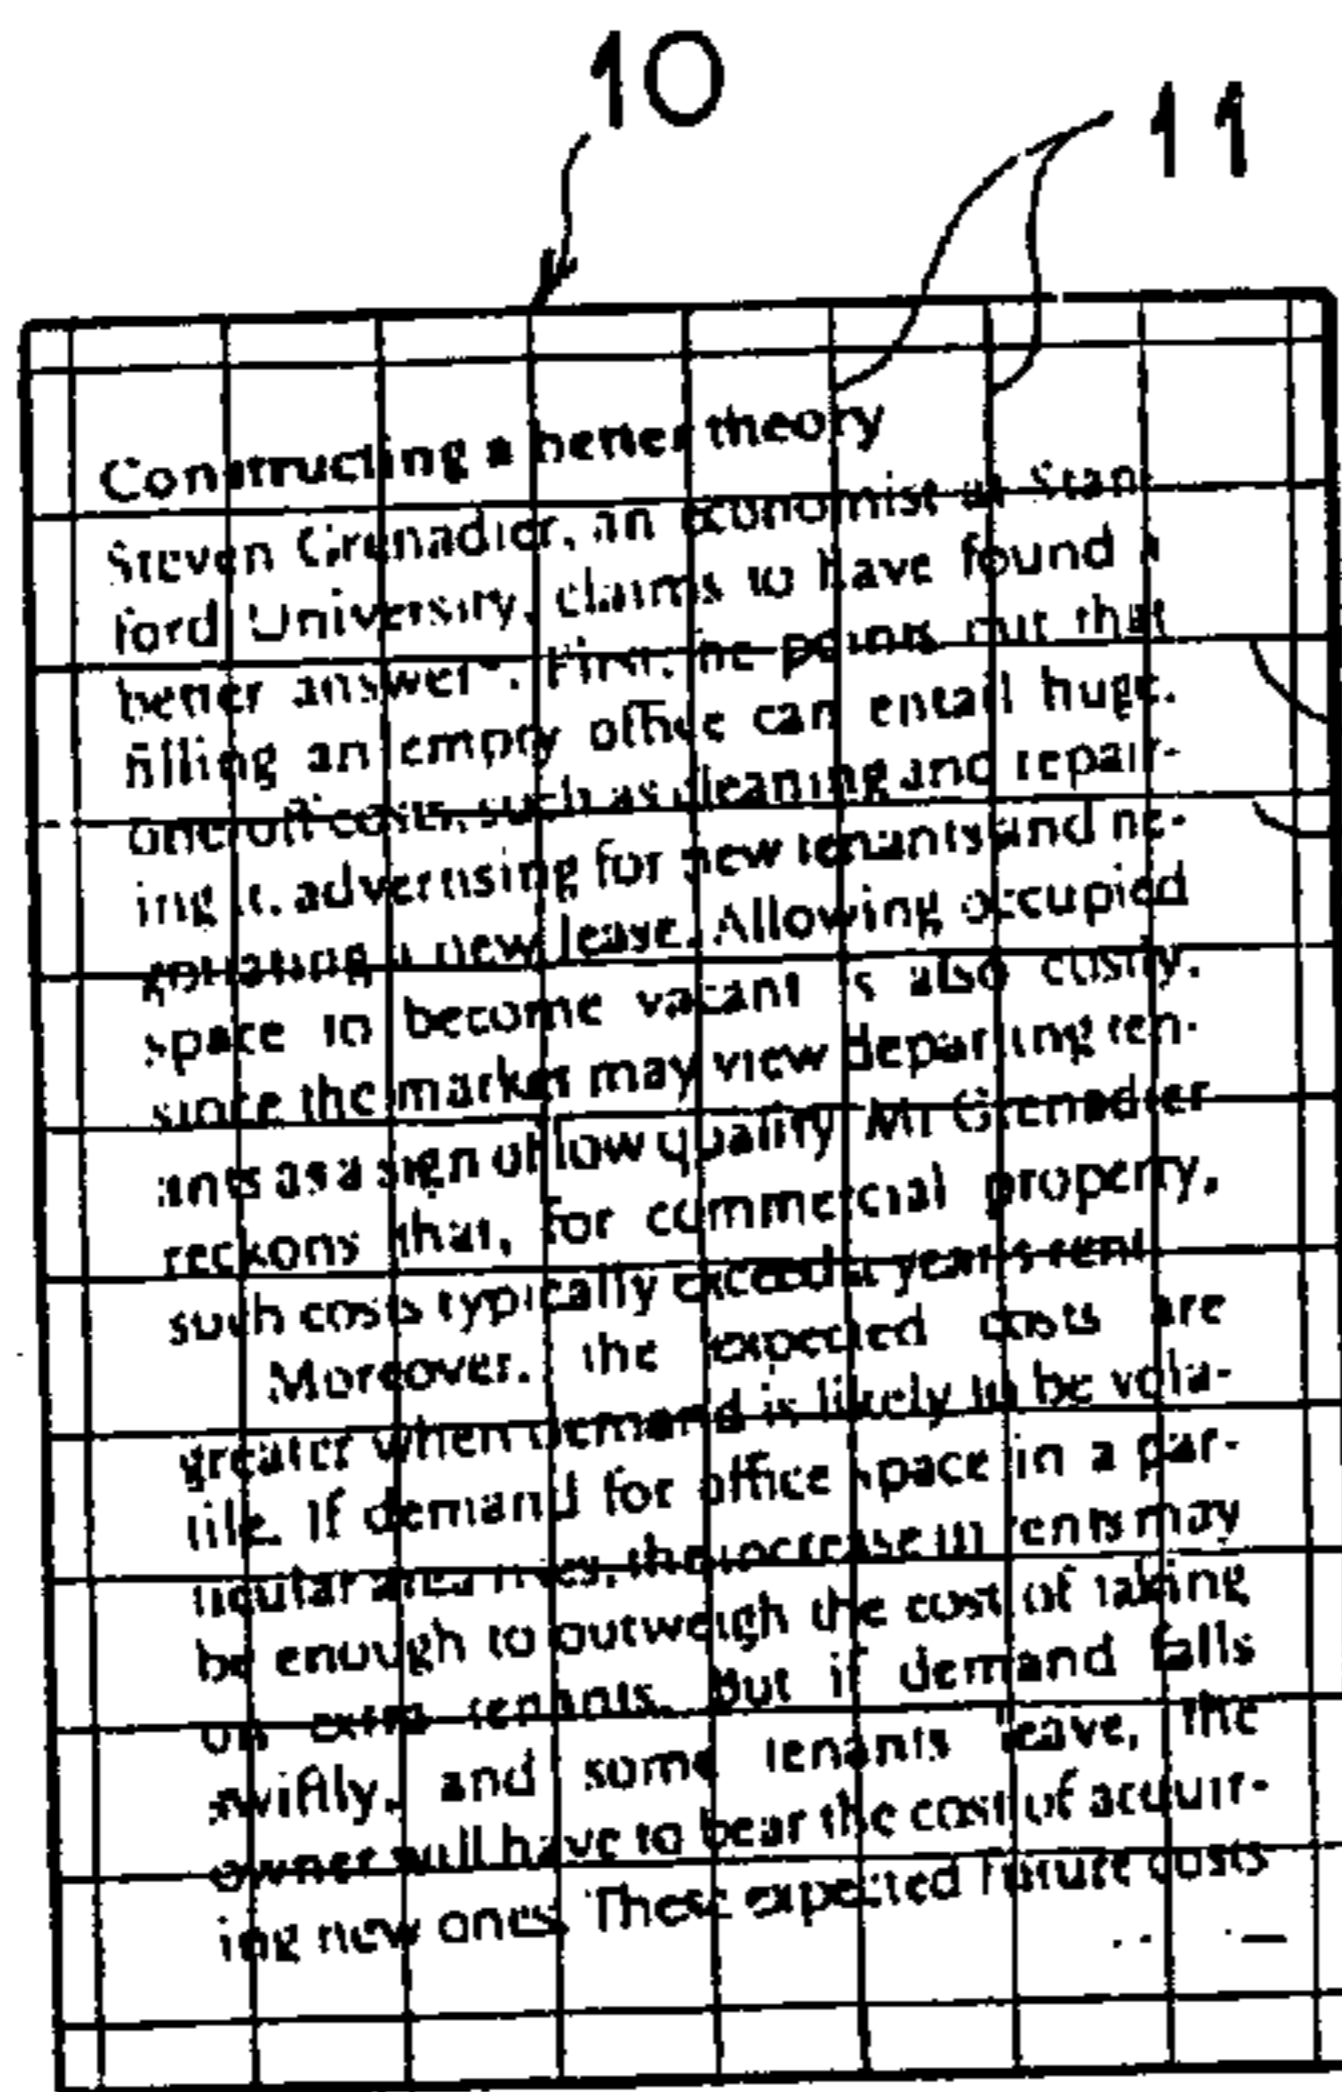 10
11
Constructing a better theory
Steven Grenadier, an economist at Stan-
ford University, claims to have found a
better answer*. First, he points out that
filling an empty office can entail huge,
one-off costs, such as cleaning and repair-
ing it, advertising for new tenants and ne-
gotiating a new lease. Allowing occupied
space to become vacant is also costly,
since the market may view departing ten-
ants as a sign of low quality. Mr Grenadier
reckons that, for commercial property,
such costs typically exceed a year's rent.
Moreover, the expected costs are
greater when demand is likely to be vola-
tile. If demand for office space in a par-
ticular area rises, the increase in rents may
be enough to outweigh the cost of taking
on extra tenants. But if demand falls
swiftly, and some tenants leave, the
owner will have to bear the cost of acquir-
ing new ones. These expected future costs